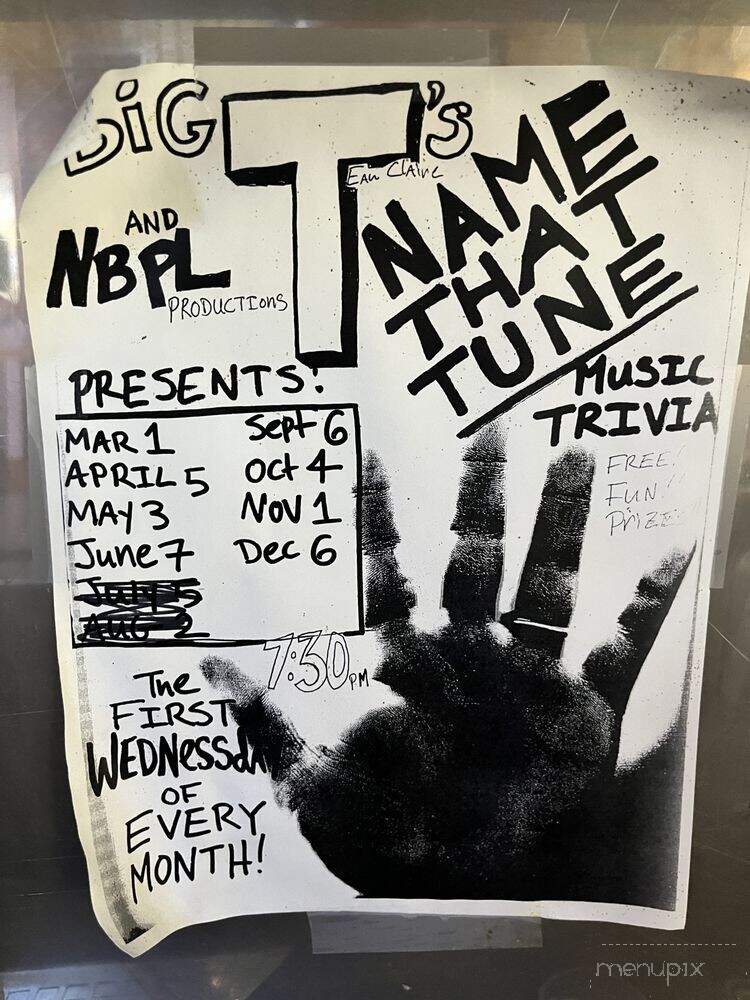 BiG T's
Eau Claire
AND
NBPL
PRODUCTIONS
NAME
THAT
TUNE
MUSIC
TRIVIA
FREE!
FUN!!
PRESENTS:
MAR 1
APRIL 5
MAY 3
June 7
July 5
AUG 2
Sept 6
Oct 4
Nov 1
Dec 6
7:30 PM
The
FIRST
WEDNessdAy
OF
EVERY
MONTH!
menupix